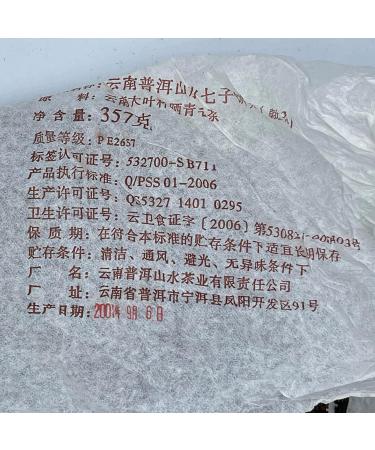 云南普洱山 七子
原 料：云南大叶种晒青毛茶
净含量：357克
质量等级：PE2657
标签认可证号：532700-SB711
产品执行标准：Q/PSS 01-2006
生产许可证号：QS5327 1401 0295
卫生许可证号：云卫食证字〔2006〕第53082
保 质 期：在符合本标准的贮存条件下适宜长期保存
贮存条件：清洁、通风、避光、无异味条件下
厂 名：云南普洱山水茶业有限责任公司
厂 址：云南省普洱市宁洱县凤阳开发区91号
生产日期：